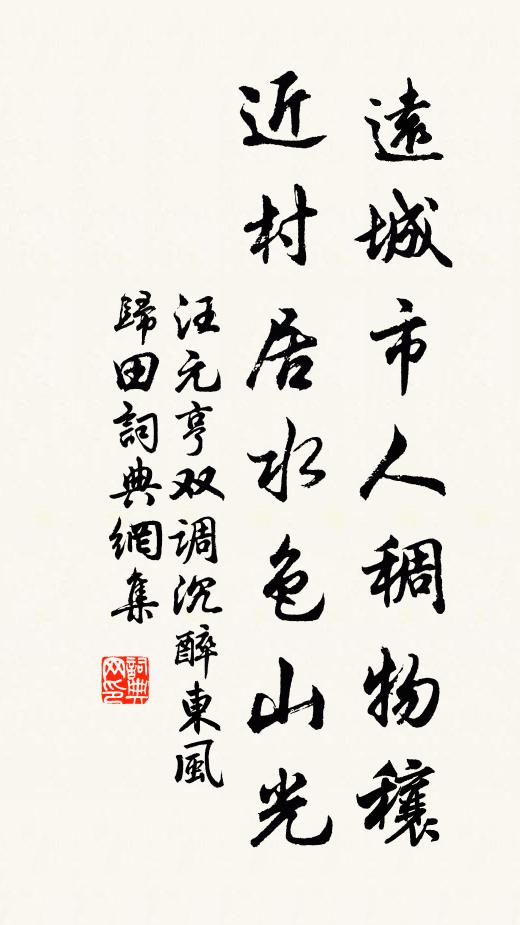 遠城市人稠物穰
近村居水色山光
汪元亨双调沉醉東風
歸田詞典網集
詞典网印